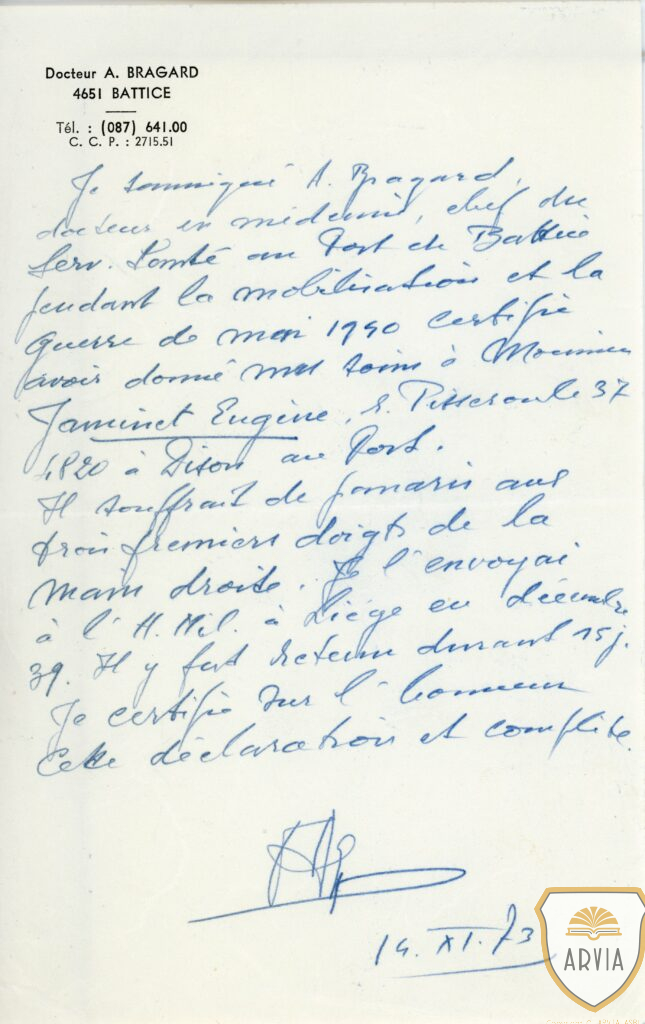 Docteur A. BRAGARD
4651 BATTICE
Tél. : (087) 641.00
C. C. P. : 2715.51
Je soussigné A. Bragard,
docteur en médecine, chef du
Serv. Santé au Fort de Battice
pendant la mobilisation et la
guerre de mai 1940 certifie
avoir donné mes soins à Monsieur
Jaminet Eugène, r. Pisseroule 37
4820 à Dison au Fort.
Il souffrait de panaris aux
trois premiers doigts de la
main droite. Je l'envoyai
à l'H. Mil. à Liège en décembre
39. Il y fut retenu durant 15 j.
Je certifie sur l'honneur
cette déclaration et complète.
14. XI. 73
ARVIA